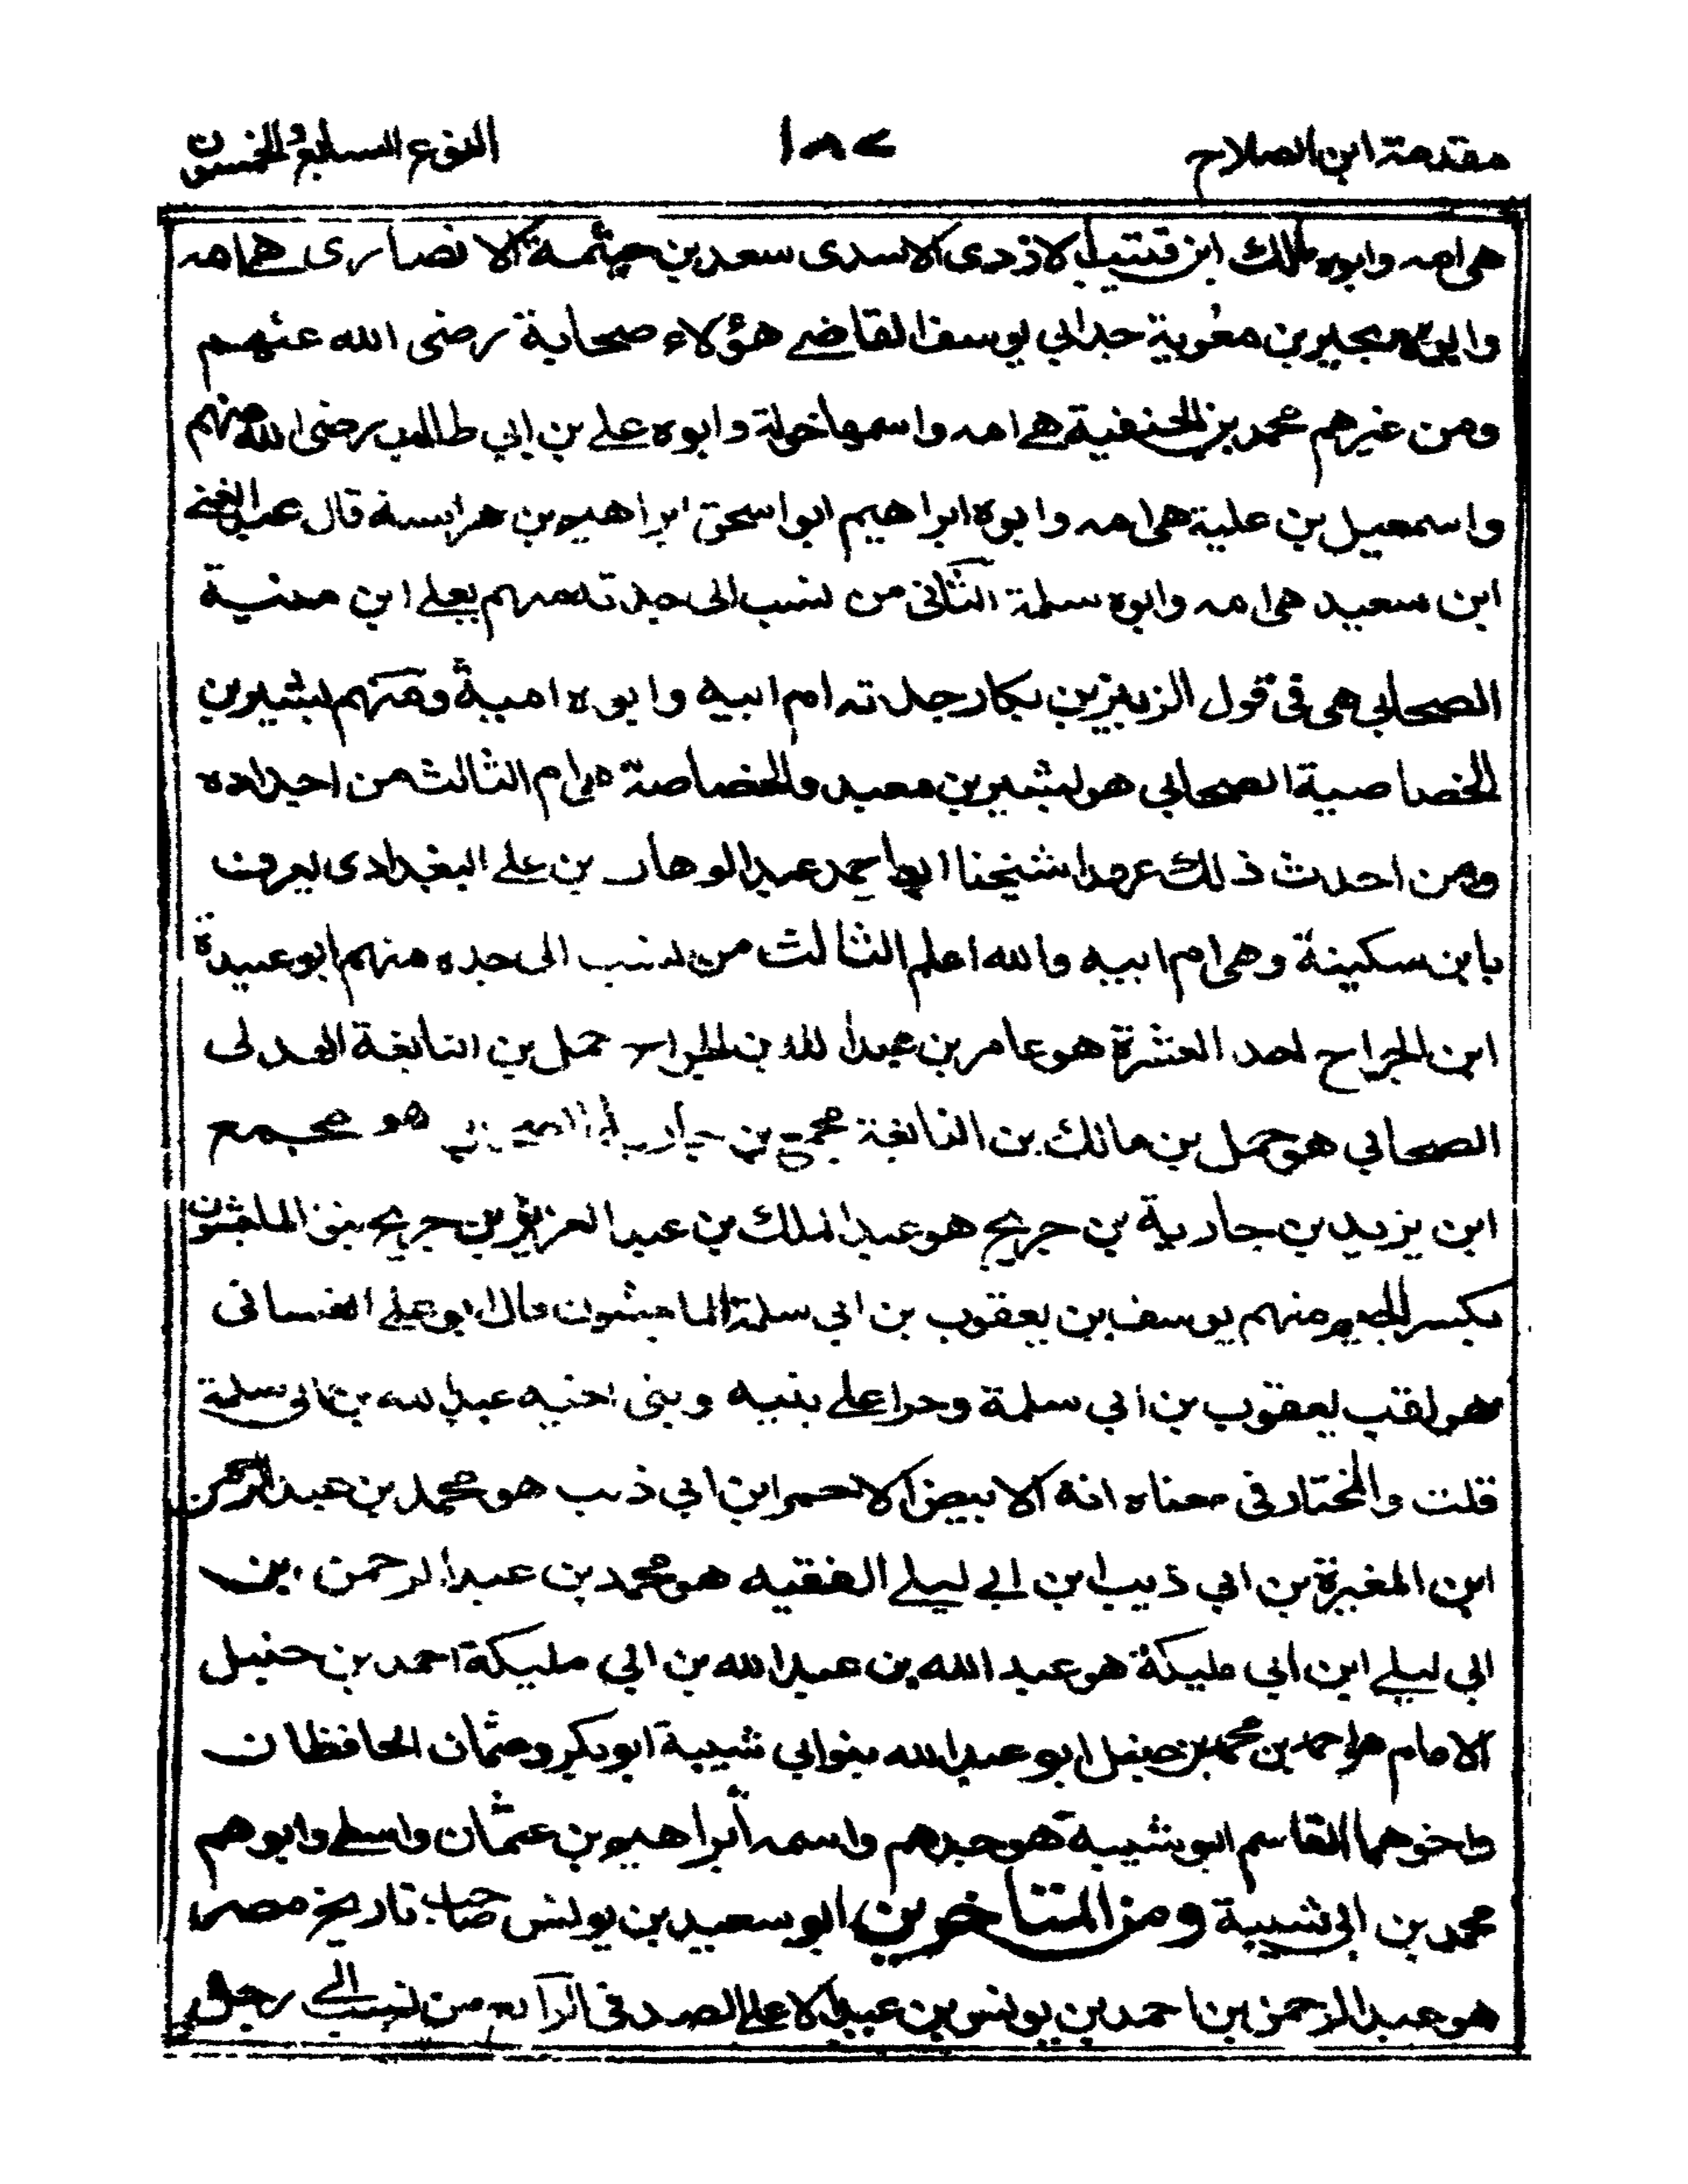 مقدمة ابن الصلاح ١٨٧ النوع السابع والخمسون
هى امه وابوه مالك ابن قتيبة الازدى الاسدى سعد بن حبتمة الانصارى هى امه
وابوه بجير بن معوية جد ابي يوسف القاضے هؤلاء صحابة رضى الله عنهم
ومن غيرهم محمد بن الحنفية هے امه واسمها خولة وابوه علے بن ابي طالب رضى الله عنهم
واسمعيل بن علية هى امه وابوه ابراهيم ابو اسحق ابراهيم بن هراسة قال عبد الغنے
ابن سعيد هى امه وابوه سلمة الثانى من نسب الى جدته منهم يعلے ابن منية
الصحابي هى فى قول الزبير بن بكار جدته ام ابيه وابوه امية ومنهم بشير بن
الخصاصية الصحابي هو بشير بن معبد والخصاصة هى ام الثالث من اجداده
ومن احدث ذلك عهدا شيخنا ابو احمد عبد الوهاب بن علے البغدادى يعرف
بابن سكينة وهى ام ابيه والله اعلم الثالث من نسب الى جده منهم ابو عبيدة
ابن الجراح احد العشرة هو عامر بن عبد الله بن الجراح حمل بن النابغة الهذلى
الصحابي هو حمل بن مالك بن النابغة مجمع بن جارية الصحابي هو مجمع
ابن يزيد بن جارية بن جريج هو عبد الملك بن عبد العزيز بن جريج بنو الماجشون
بكسر الجيم منهم يوسف بن يعقوب بن ابي سلمة الماجشون قال ابو علے الغسانى
هو لقب يعقوب بن ابي سلمة وجرا علے بنيه وبنى اخيه عبد الله بن ابى سلمة
قلت والمختار فى معناه انه الابيض الاحمر ابن ابي ذئب هو محمد بن عبد الرحمن
ابن المغيرة بن ابي ذيب ابن ابي ليلے الفقيه هو محمد بن عبد الرحمن ابن
ابي ليلے ابن ابي مليكة هو عبد الله بن عبيد الله بن ابي مليكة احمد بن حنبل
الامام هو احمد بن محمد بن حنبل ابو عبد الله بنو ابي شيبة ابو بكر وعثمان الحافظان
واخوهما القاسم ابو شيبة هو جدهم واسمه ابراهيم بن عثمان واسطے وابوهم
محمد بن ابي شيبة ومن المتاخرين ابو سعيد بن يونس صاحب تاريخ مصر
هو عبد الرحمن بن احمد بن يونس بن عبد الاعلے الصدفى الرابع من نسب الے رجل